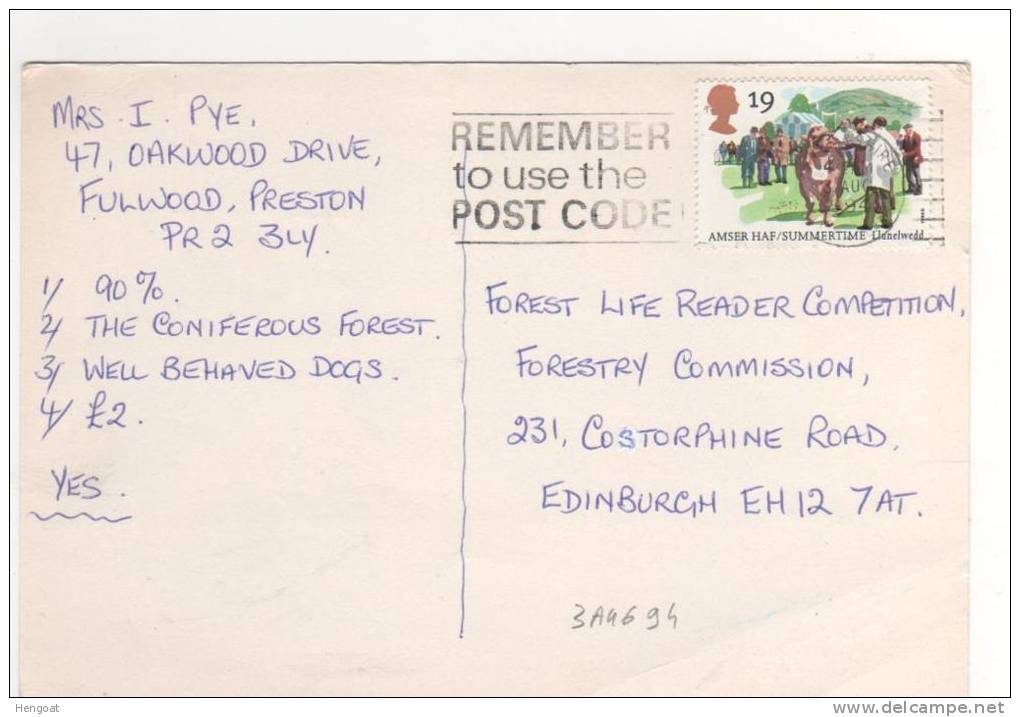 MRS. I. PYE,
47, OAKWOOD DRIVE,
FULWOOD, PRESTON
PR2 3LY.
1/ 90%.
2/ THE CONIFEROUS FOREST.
3/ WELL BEHAVED DOGS.
4/ £2.
YES.
REMEMBER
to use the
POST CODE
19
AUG
AMSER HAF/SUMMERTIME Llanelwedd
FOREST LIFE READER COMPETITION,
FORESTRY COMMISSION,
231, COSTORPHINE ROAD,
EDINBURGH EH12 7AT.
3A4694
Hengoat
www.delcampe.net